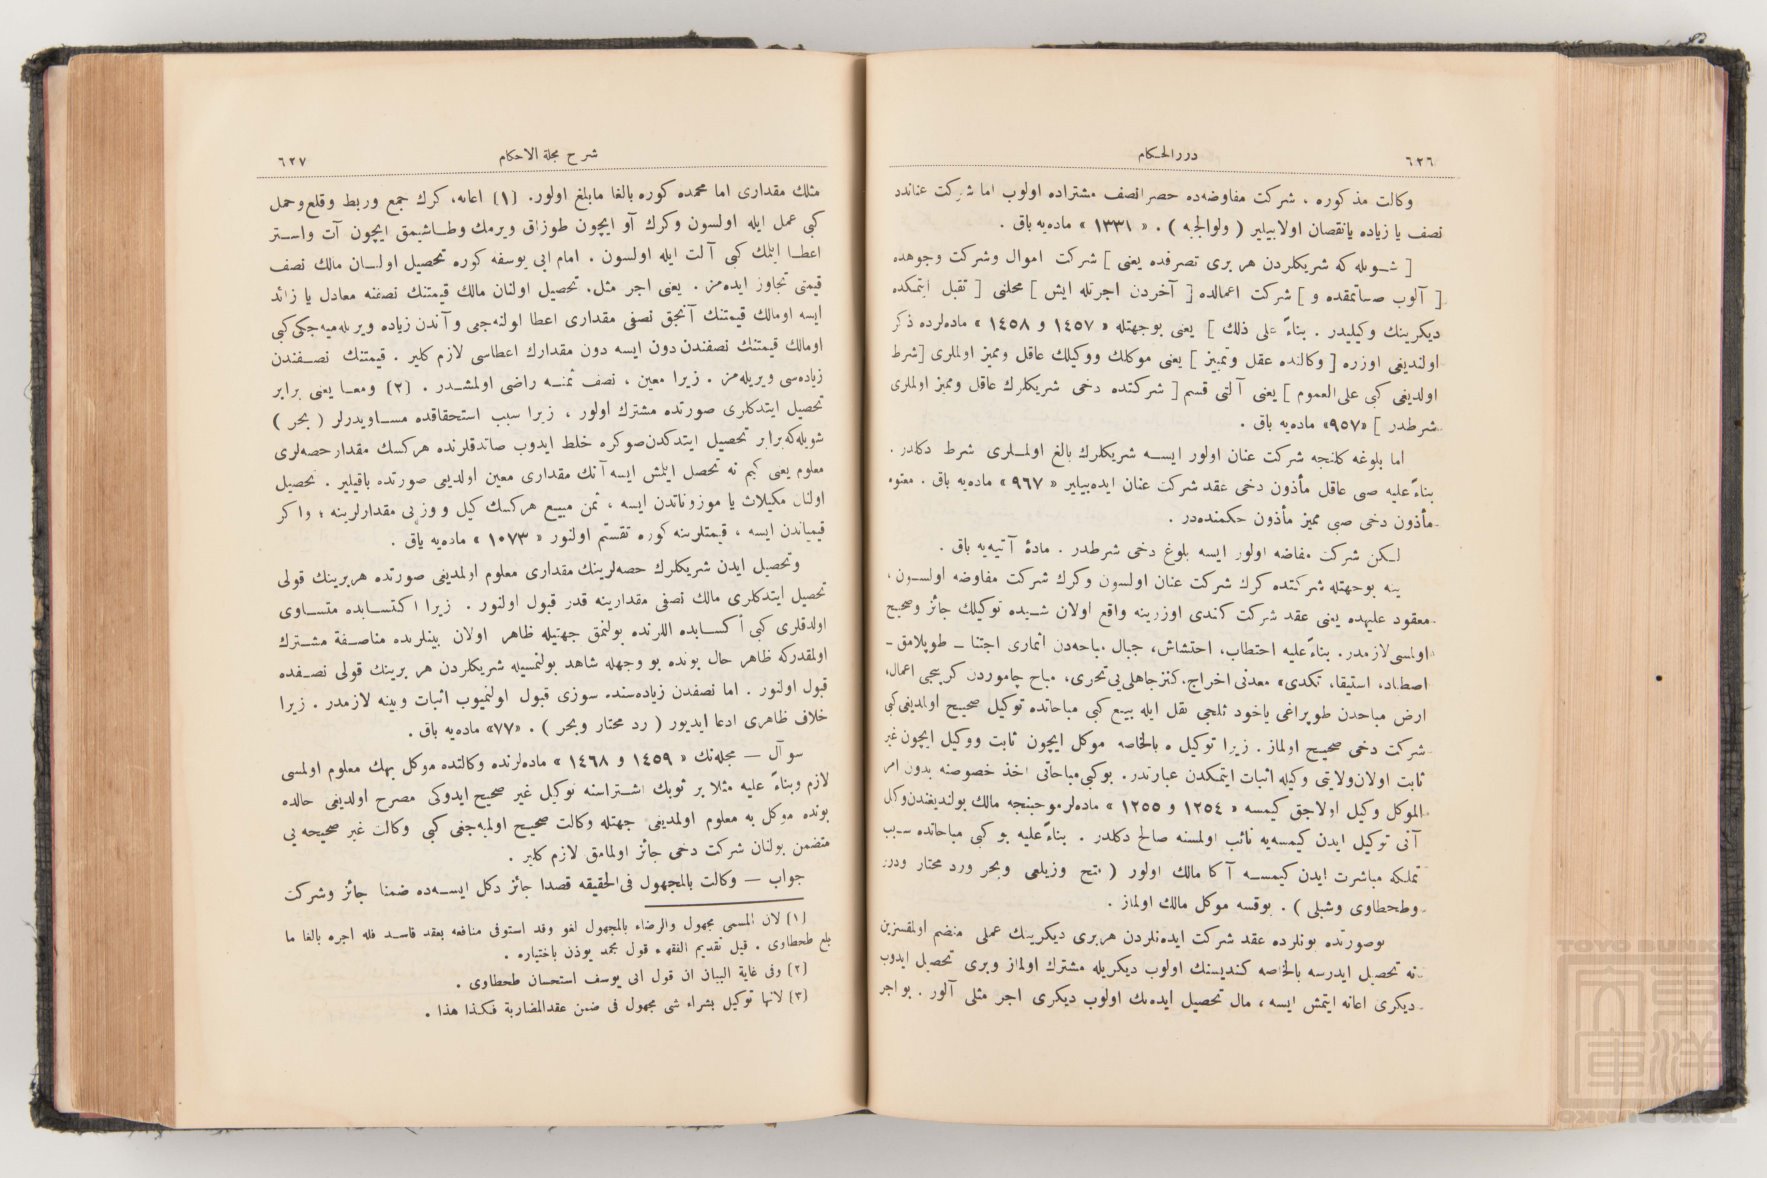 ٦٢٦
دررالحكام
وكالت مذكوره ، شركت مفاوضه‌ده حصر انصف مشتراده اولوب اما شركت عنانده
نصف يا زياده يانقصان اولابيلير ( ولوالجيه ) . « ١٣٣١ » ماده‌يه باق .
[ شويله كه شريكلردن هر برى تصرفده يعنى ] شركت اموال وشركت وجوهده
[ آلوب صاتمقده و ] شركت اعمالده [ آخردن اجرتله ايش ] محلنى [ تقبل ايتمكده
ديكرينك وكيليدر . بناءً على ذلك ] يعنى بوجهتله « ١٤٥٧ و ١٤٥٨ » ماده‌لرده ذكر
اولنديغى اوزره [ وكالتده عقل وتمييز ] يعنى موكلك ووكيلك عاقل ومميز اولملرى [شرط
اولديغى كبى على العموم ] يعنى آلتى قسم [ شركتده دخى شريكلرك عاقل ومميز اولملرى
شرطدر ] «٩٥٧» ماده‌يه باق .
اما بلوغه كلنجه شركت عنان اولور ايسه شريكلرك بالغ اولملرى شرط دكلدر .
بناءً عليه صبى عاقل مأذون دخى عقد شركت عنان ايده‌بيلير « ٩٦٧ » ماده‌يه باق . معتوه
مأذون دخى صبى مميز مأذون حكمنده‌در .
لكن شركت مفاضه اولور ايسه بلوغ دخى شرطدر . مادۀ آتيه‌يه باق .
ينه بوجهتله شركتده كرك شركت عنان اولسون وكرك شركت مفاوضه اولسون ،
معقود عليهده يعنى عقد شركت كندى اوزرينه واقع اولان شيده توكيلك جائز وصحيح
اولمسى لازمدر. بناءً عليه احتطاب، احتشاش، جبال مباحه‌دن اثمارى اجتنا ـ طوپلامق ـ
اصطياد، استيقا، تكدى، معدنى اخراج، كنز جاهلى‌يى تحرى، مباح چاموردن كرپيجى اعمال،
ارض مباحدن طوپراغى ياخود ثلجى نقل ايله بيع كبى مباحاتده توكيل صحيح اولمديغى كبى
شركت دخى صحيح اولماز . زيرا توكيل ه بالخاصه موكل ايچون ثابت ووكيل ايچون غير
ثابت اولان ولايتى وكيله اثبات ايتمكدن عبارتدر. بوكبى مباحاتى اخذ خصوصنه بدون امر
الموكل وكيل اولاجق كيمسه « ١٢٥٤ و ١٢٥٥ » ماده‌لر موجبنجه مالك بولنديغندن وكل
آنى توكيل ايدن كيمسه‌يه نائب اولمسنه صالح دكلدر . بناءً عليه بو كبى مباحاتده سبب
تملكه مباشرت ايدن كيمسه آكا مالك اولور ( فتح وزيلعى وبحر ورد محتار ودرر
وطحطاوى وشبلى ) . يوقسه موكل مالك اولماز .
بوصورتده بونلرده عقد شركت ايده‌نلردن هربرى ديكرينك عملى منضم اولمقسزين
نه تحصيل ايدرسه بالخاصه كنديسنك اولوب ديكريله مشترك اولماز وبرى تحصيل ايدوب
ديكرى اعانه ايتمش ايسه ، مال تحصيل ايده‌نك اولوب ديكرى اجر مثلى آلور . بو اجر
شرح مجلة الاحكام
٦٢٧
مثلك مقدارى اما محمده كوره بالغا مابلغ اولور. (١) اعانه، كرك جمع وربط وقلع وحمل
كبى عمل ايله اولسون وكرك آو ايچون طوزاق ويرمك وطاشيمق ايچون آت واستر
اعطا ايتمك كبى آلت ايله اولسون . امام ابى يوسفه كوره تحصيل اولنان مالك نصف
قيمتى تجاوز ايده‌مز . يعنى اجر مثل، تحصيل اولنان مالك قيمتنك نصفنه معادل يا زائد
ايسه اومالك قيمتنك آنجق نصفى مقدارى اعطا اولنه‌جق وآندن زياده ويريله‌ميه‌جكى كبى
اومالك قيمتنك نصفندن دون ايسه دون مقدارك اعطاسى لازم كلير . قيمتنك نصفندن
زياده‌سى ويريله‌مز . زيرا معين ، نصف ثمنه راضى اولمشدر . (٢) ومعا يعنى برابر
تحصيل ايتدكلرى صورتده مشترك اولور ، زيرا سبب استحقاقده مساويدرلر ( بحر )
شويله‌كه برابر تحصيل ايتدكدن صوكره خلط ايدوب صاتدقلرنده هركسك مقدار حصه‌لرى
معلوم يعنى كيم نه تحصل ايتمش ايسه آنك مقدارى معين اولديغى صورتده باقيلير . تحصيل
اولنان مكيلات يا موزوناتدن ايسه ، ثمن مبيع هركسك كيل و وزنى مقدارلرينه ؛ واكر
قيمياتدن ايسه ، قيمتلرينه كوره تقسيم اولنور « ١٠٧٣ » ماده‌يه باق .
وتحصيل ايدن شريكلرك حصه‌لرينك مقدارى معلوم اولمديغى صورتده هربرينك قولى
تحصيل ايتدكلرى مالك نصفى مقدارينه قدر قبول اولنور . زيرا اكتسابده متساوى
اولدقلرى كبى اكسابده اللرنده بولنمق جهتيله ظاهر اولان بينلرنده مناصفة مشترك
اولمقدركه ظاهر حال بونده بو وجهله شاهد بولنمسيله شريكلردن هر برينك قولى نصفده
قبول اولنور . اما نصفدن زياده‌سنده سوزى قبول اولنميوب اثبات وبينه لازمدر . زيرا
خلاف ظاهرى ادعا ايديور ( رد محتار وبحر ) . «٧٧» ماده‌يه باق .
سوآل — مجله‌نك « ١٤٥٩ و ١٤٦٨ » ماده‌لرنده وكالتده موكل بهك معلوم اولمسى
لازم وبناءً عليه مثلا بر ثوبك اشتراسنه توكيل غير صحيح ايدوكى مصرح اولديغى حالده
بونده موكل به معلوم اولمديغى جهتله وكالت صحيح اولميه‌جغى كبى وكالت غير صحيحه يى
متضمن بولنان شركت دخى جائز اولمامق لازم كلير .
جواب — وكالت بالمجهول فى الحقيقه قصدا جائز دكل ايسه‌ده ضمنا جائز وشركت
(١) لان المسمى مجهول والرضاء بالمجهول لغو وقد استوفى منافعه بعقد فاسد فله اجره بالغا ما
بلغ طحطاوى . قيل تقديم الفقهاء قول محمد يوذن باختياره .
(٢) وفى غاية البيان ان قول ابى يوسف استحسان طحطاوى .
(٣) لانها توكيل بشراء شى مجهول فى ضمن عقدالمضاربة فكذا هذا .
TOYO BUNKO